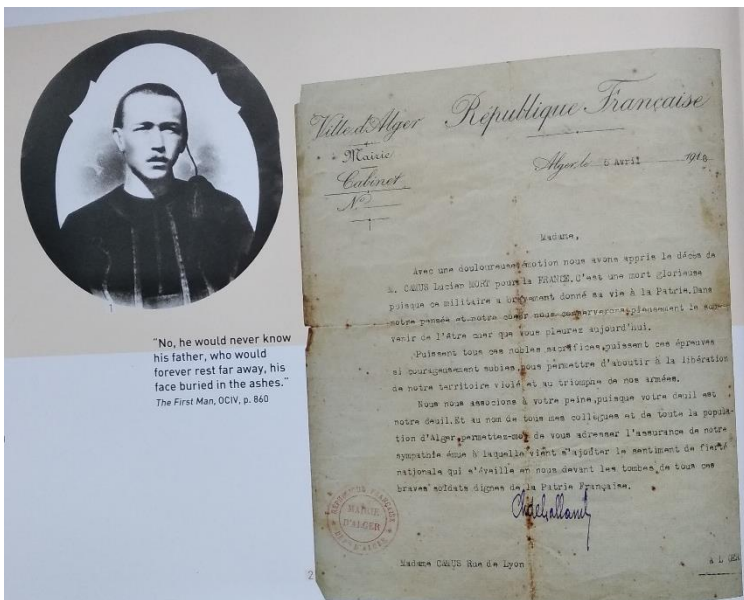 1
"No, he would never know
his father, who would
forever rest far away, his
face buried in the ashes."
The First Man, OCIV, p. 860
Ville d'Alger République Française
Mairie
Cabinet
No
Alger, le 6 Avril 1918
Madame,
Avec une douloureuse émotion nous avons appris le décès de
M. CAMUS Lucien MORT pour la FRANCE.C'est une mort glorieuse
puisque ce militaire a bravement donné sa vie à la Patrie.Dans
notre pensée et notre coeur nous conserverons pieusement le sou-
venir de l'être cher que vous pleurez aujourd'hui.
Puissent tous ces nobles sacrifices,puissent ces épreuves
si courageusement subies,nous permettre d'aboutir à la libération
de notre territoire violé et au triomphe de nos armées.
Nous nous associons à votre peine,puisque votre deuil est
notre deuil.Et au nom de tous mes collègues et de toute la popula-
tion d'Alger,permettez-moi de vous adresser l'assurance de notre
sympathie émue à laquelle vient s'ajouter le sentiment de fierté
nationale qui s'éveille en nous devant les tombes de tous ces
braves soldats dignes de la Patrie Française.
REPUBLIQUE FRANÇAISE
MAIRIE
D'ALGER
2
Madame CAMUS Rue de Lyon